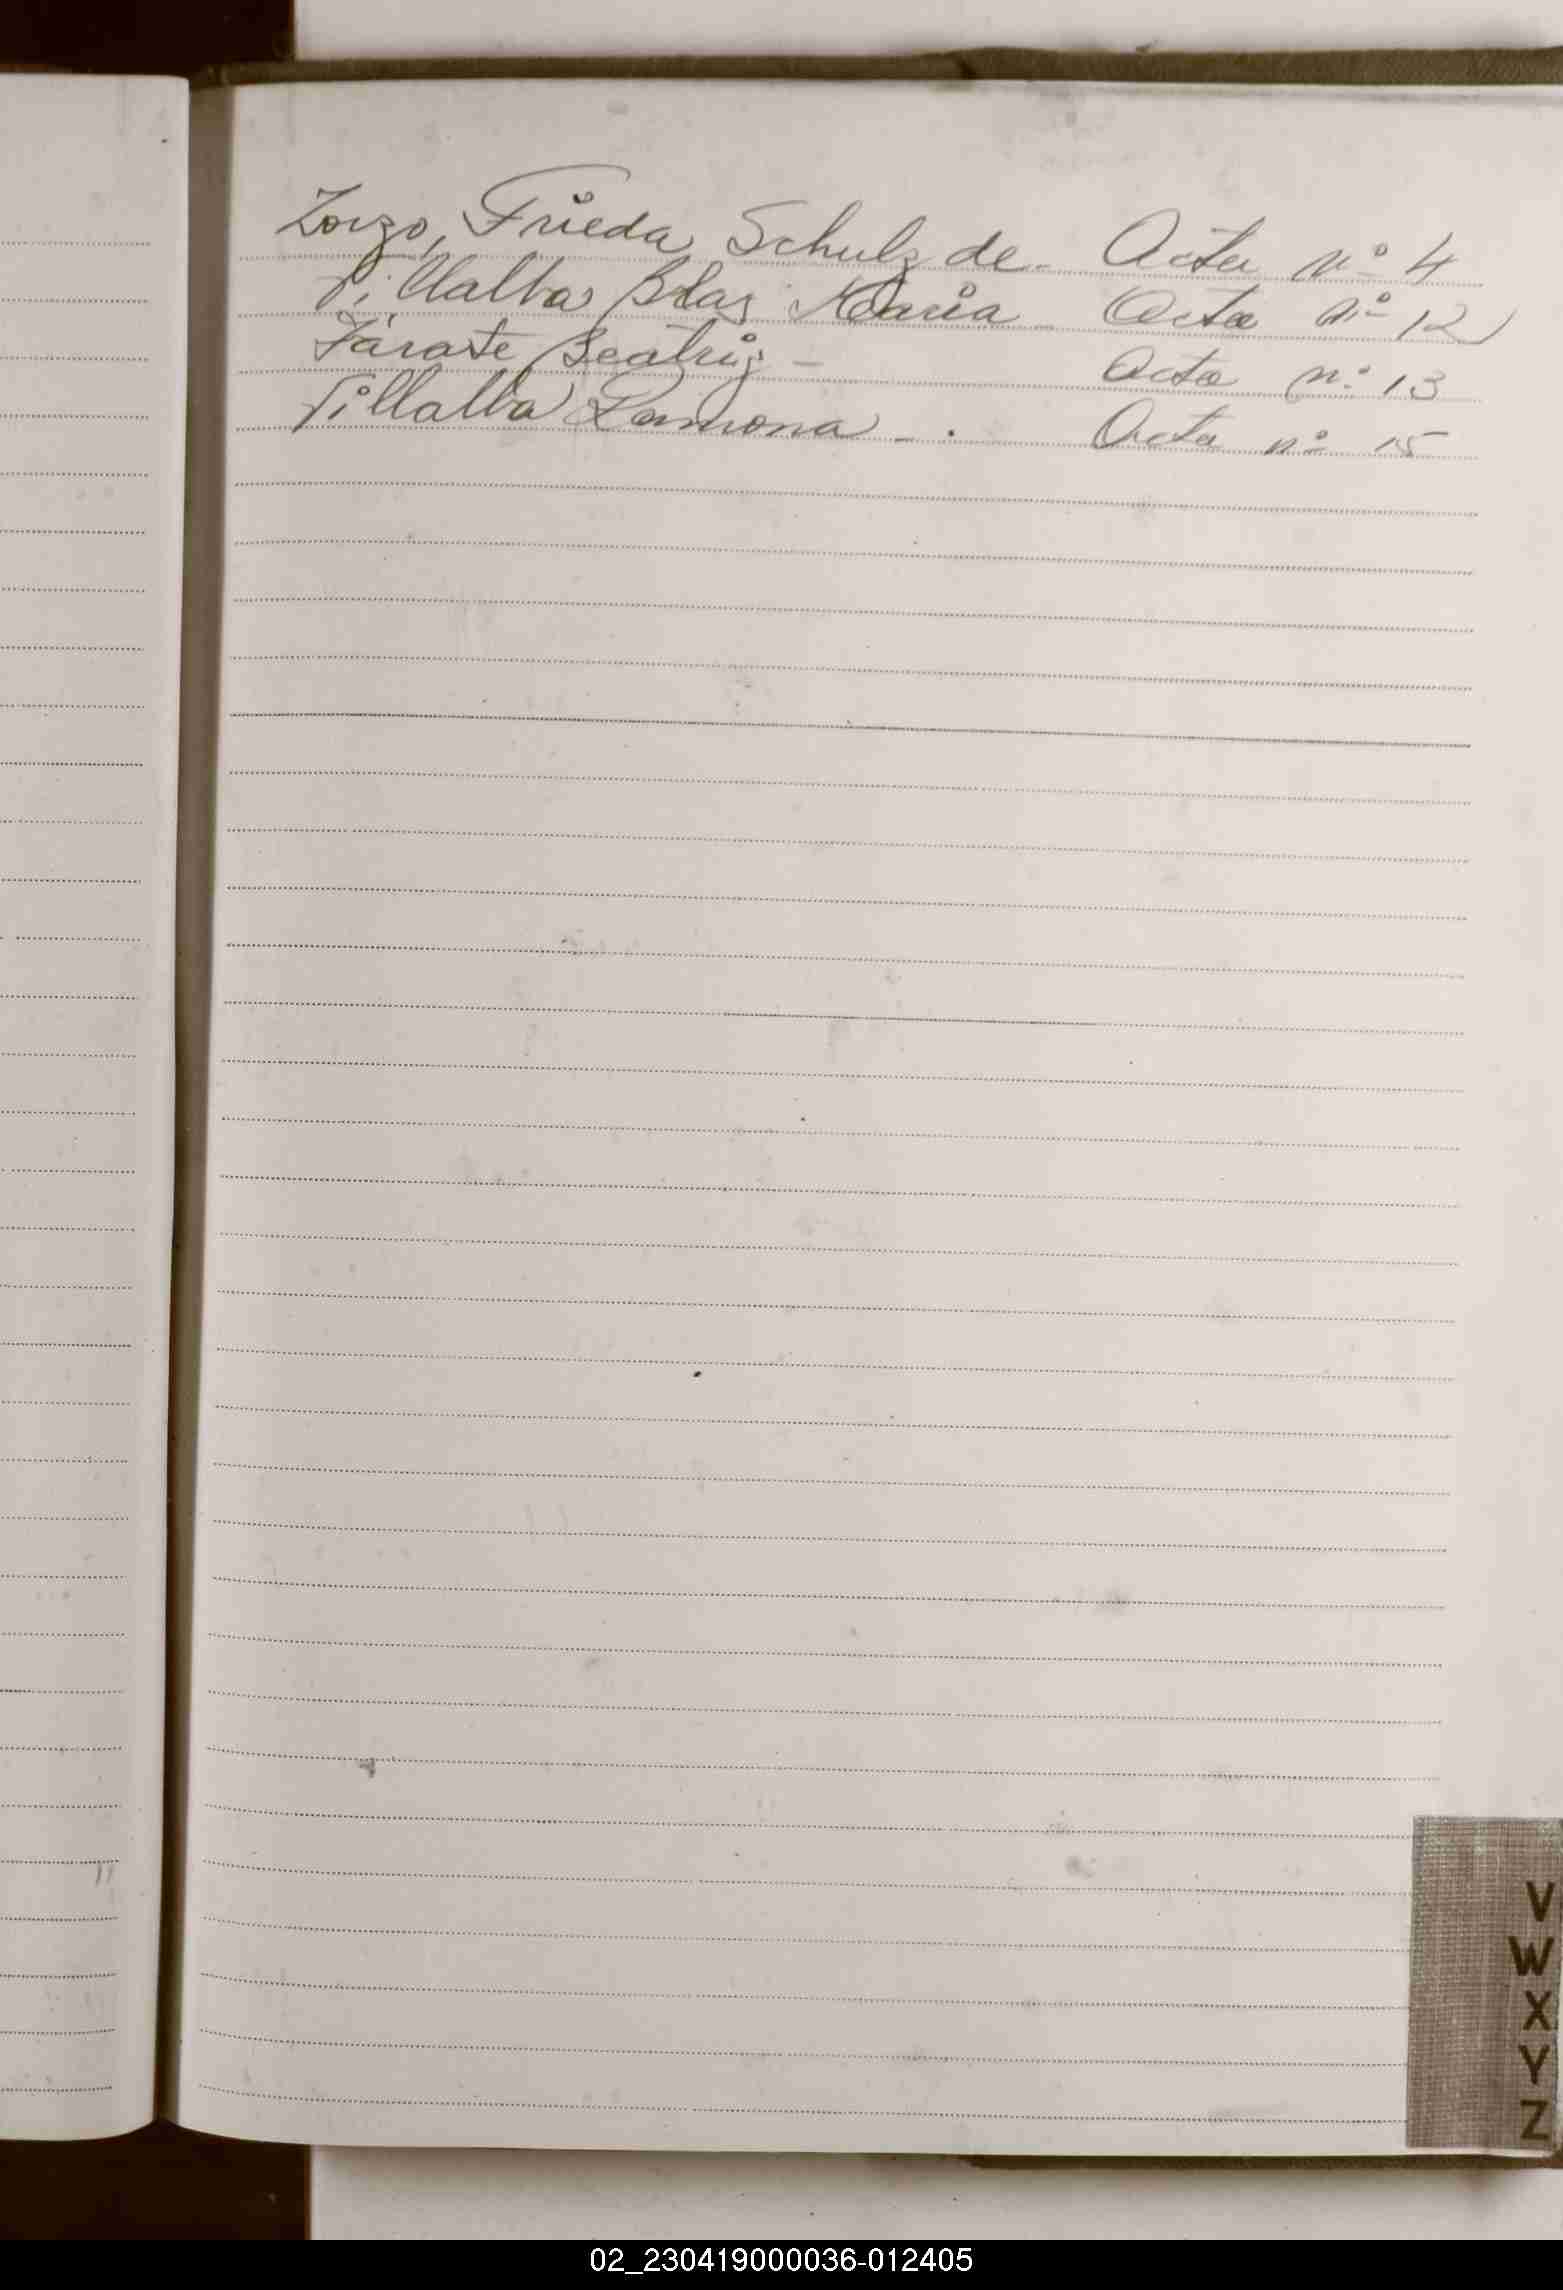 Zorzo, Frieda Schulz de - Acta nº 4
Villalba Blas María - Acta nº 12
Zárate Beatriz - Acta nº 13
Villalba Ramona - . Acta nº 15
V
W
X
Y
Z
02_230419000036-012405